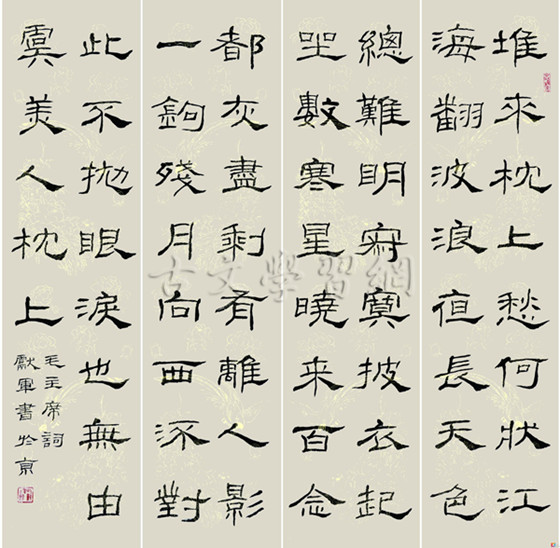 堆來枕上愁何狀江
海翻波浪夜長天色
總難明寂寞披衣起
坐數寒星曉來百念
都灰盡剩有離人影
一鉤殘月向西流對
此不拋眼淚也無由
虞美人枕上
毛主席詞
獻軍書於京
古文學習網